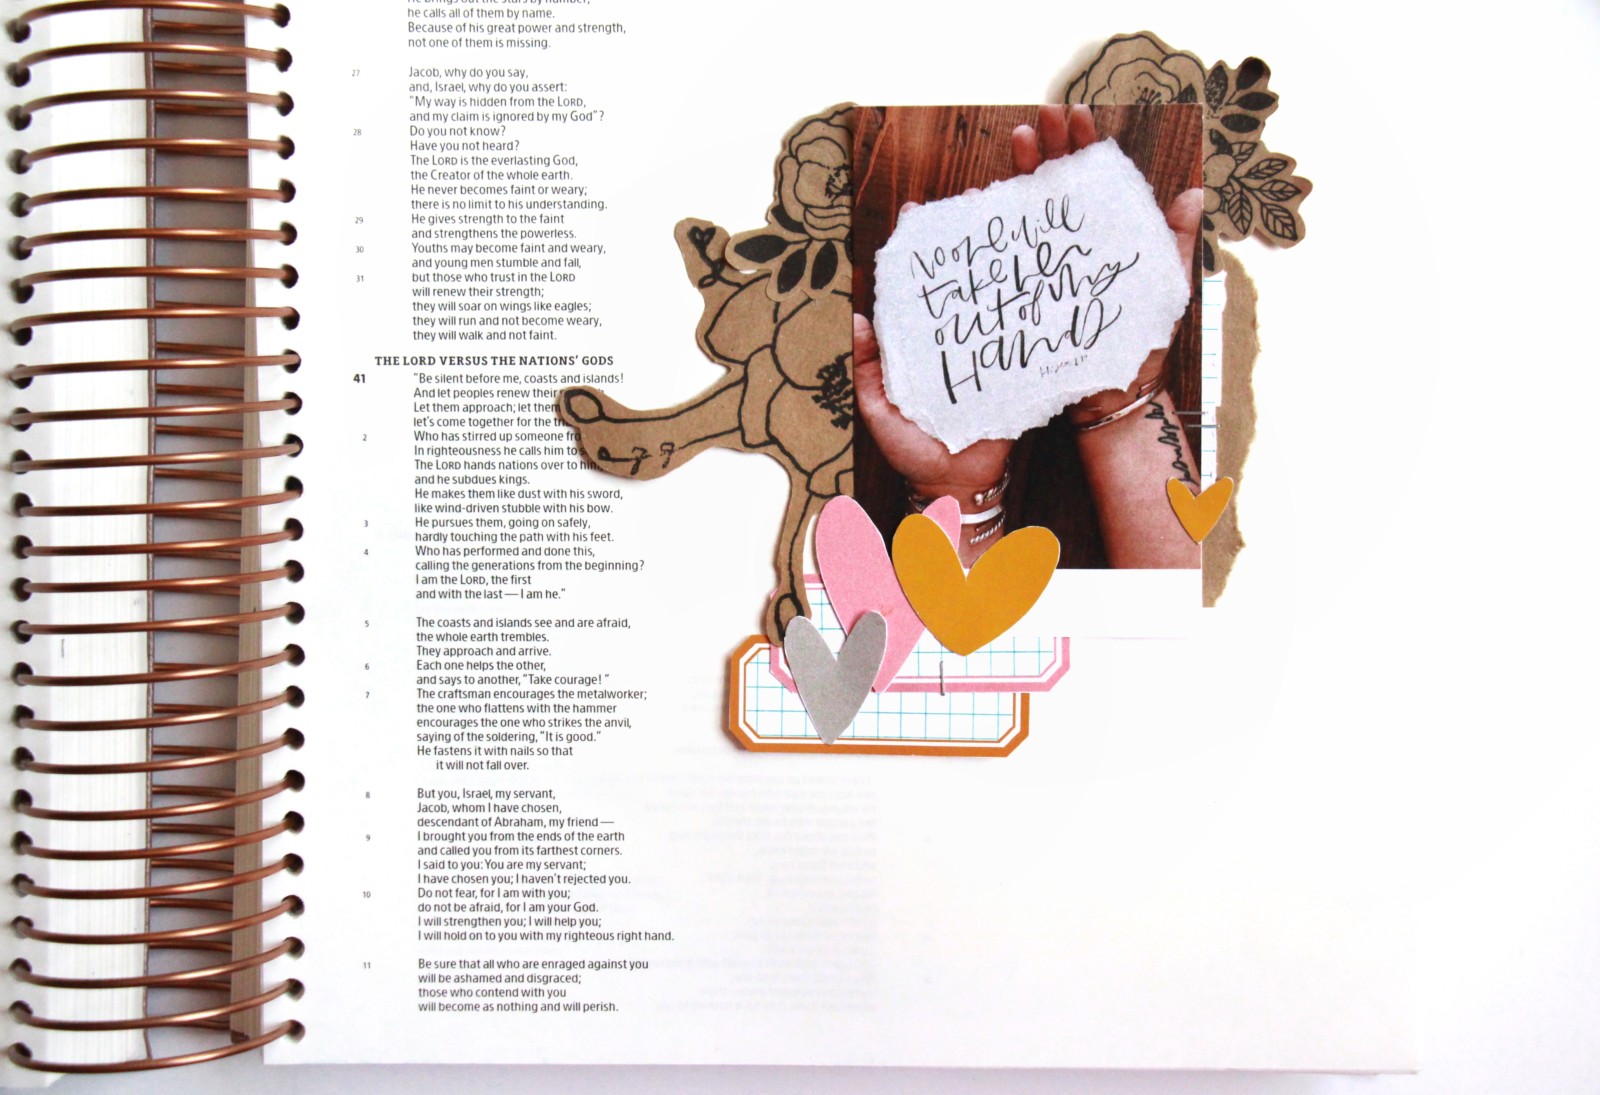 He brings out the stars by number;
he calls all of them by name.
Because of his great power and strength,
not one of them is missing.
27 Jacob, why do you say,
and, Israel, why do you assert:
"My way is hidden from the LORD,
and my claim is ignored by my God"?
28 Do you not know?
Have you not heard?
The LORD is the everlasting God,
the Creator of the whole earth.
He never becomes faint or weary;
there is no limit to his understanding.
29 He gives strength to the faint
and strengthens the powerless.
30 Youths may become faint and weary,
and young men stumble and fall,
31 but those who trust in the LORD
will renew their strength;
they will soar on wings like eagles;
they will run and not become weary,
they will walk and not faint.
THE LORD VERSUS THE NATIONS' GODS
41 "Be silent before me, coasts and islands!
And let peoples renew their
Let them approach; let them
let's come together for the
2 Who has stirred up someone
In righteousness he calls him to
The LORD hands nations over to him,
and he subdues kings.
He makes them like dust with his sword,
like wind-driven stubble with his bow.
3 He pursues them, going on safely,
hardly touching the path with his feet.
4 Who has performed and done this,
calling the generations from the beginning?
I am the LORD, the first
and with the last — I am he."
5 The coasts and islands see and are afraid,
the whole earth trembles.
They approach and arrive.
6 Each one helps the other,
and says to another, "Take courage! "
7 The craftsman encourages the metalworker;
the one who flattens with the hammer
encourages the one who strikes the anvil,
saying of the soldering, "It is good."
He fastens it with nails so that
it will not fall over.
8 But you, Israel, my servant,
Jacob, whom I have chosen,
descendant of Abraham, my friend —
9 I brought you from the ends of the earth
and called you from its farthest corners.
I said to you: You are my servant;
I have chosen you; I haven't rejected you.
10 Do not fear, for I am with you;
do not be afraid, for I am your God.
I will strengthen you; I will help you;
I will hold on to you with my righteous right hand.
11 Be sure that all who are enraged against you
will be ashamed and disgraced;
those who contend with you
will become as nothing and will perish.
No one will
take her
out of my
Hand